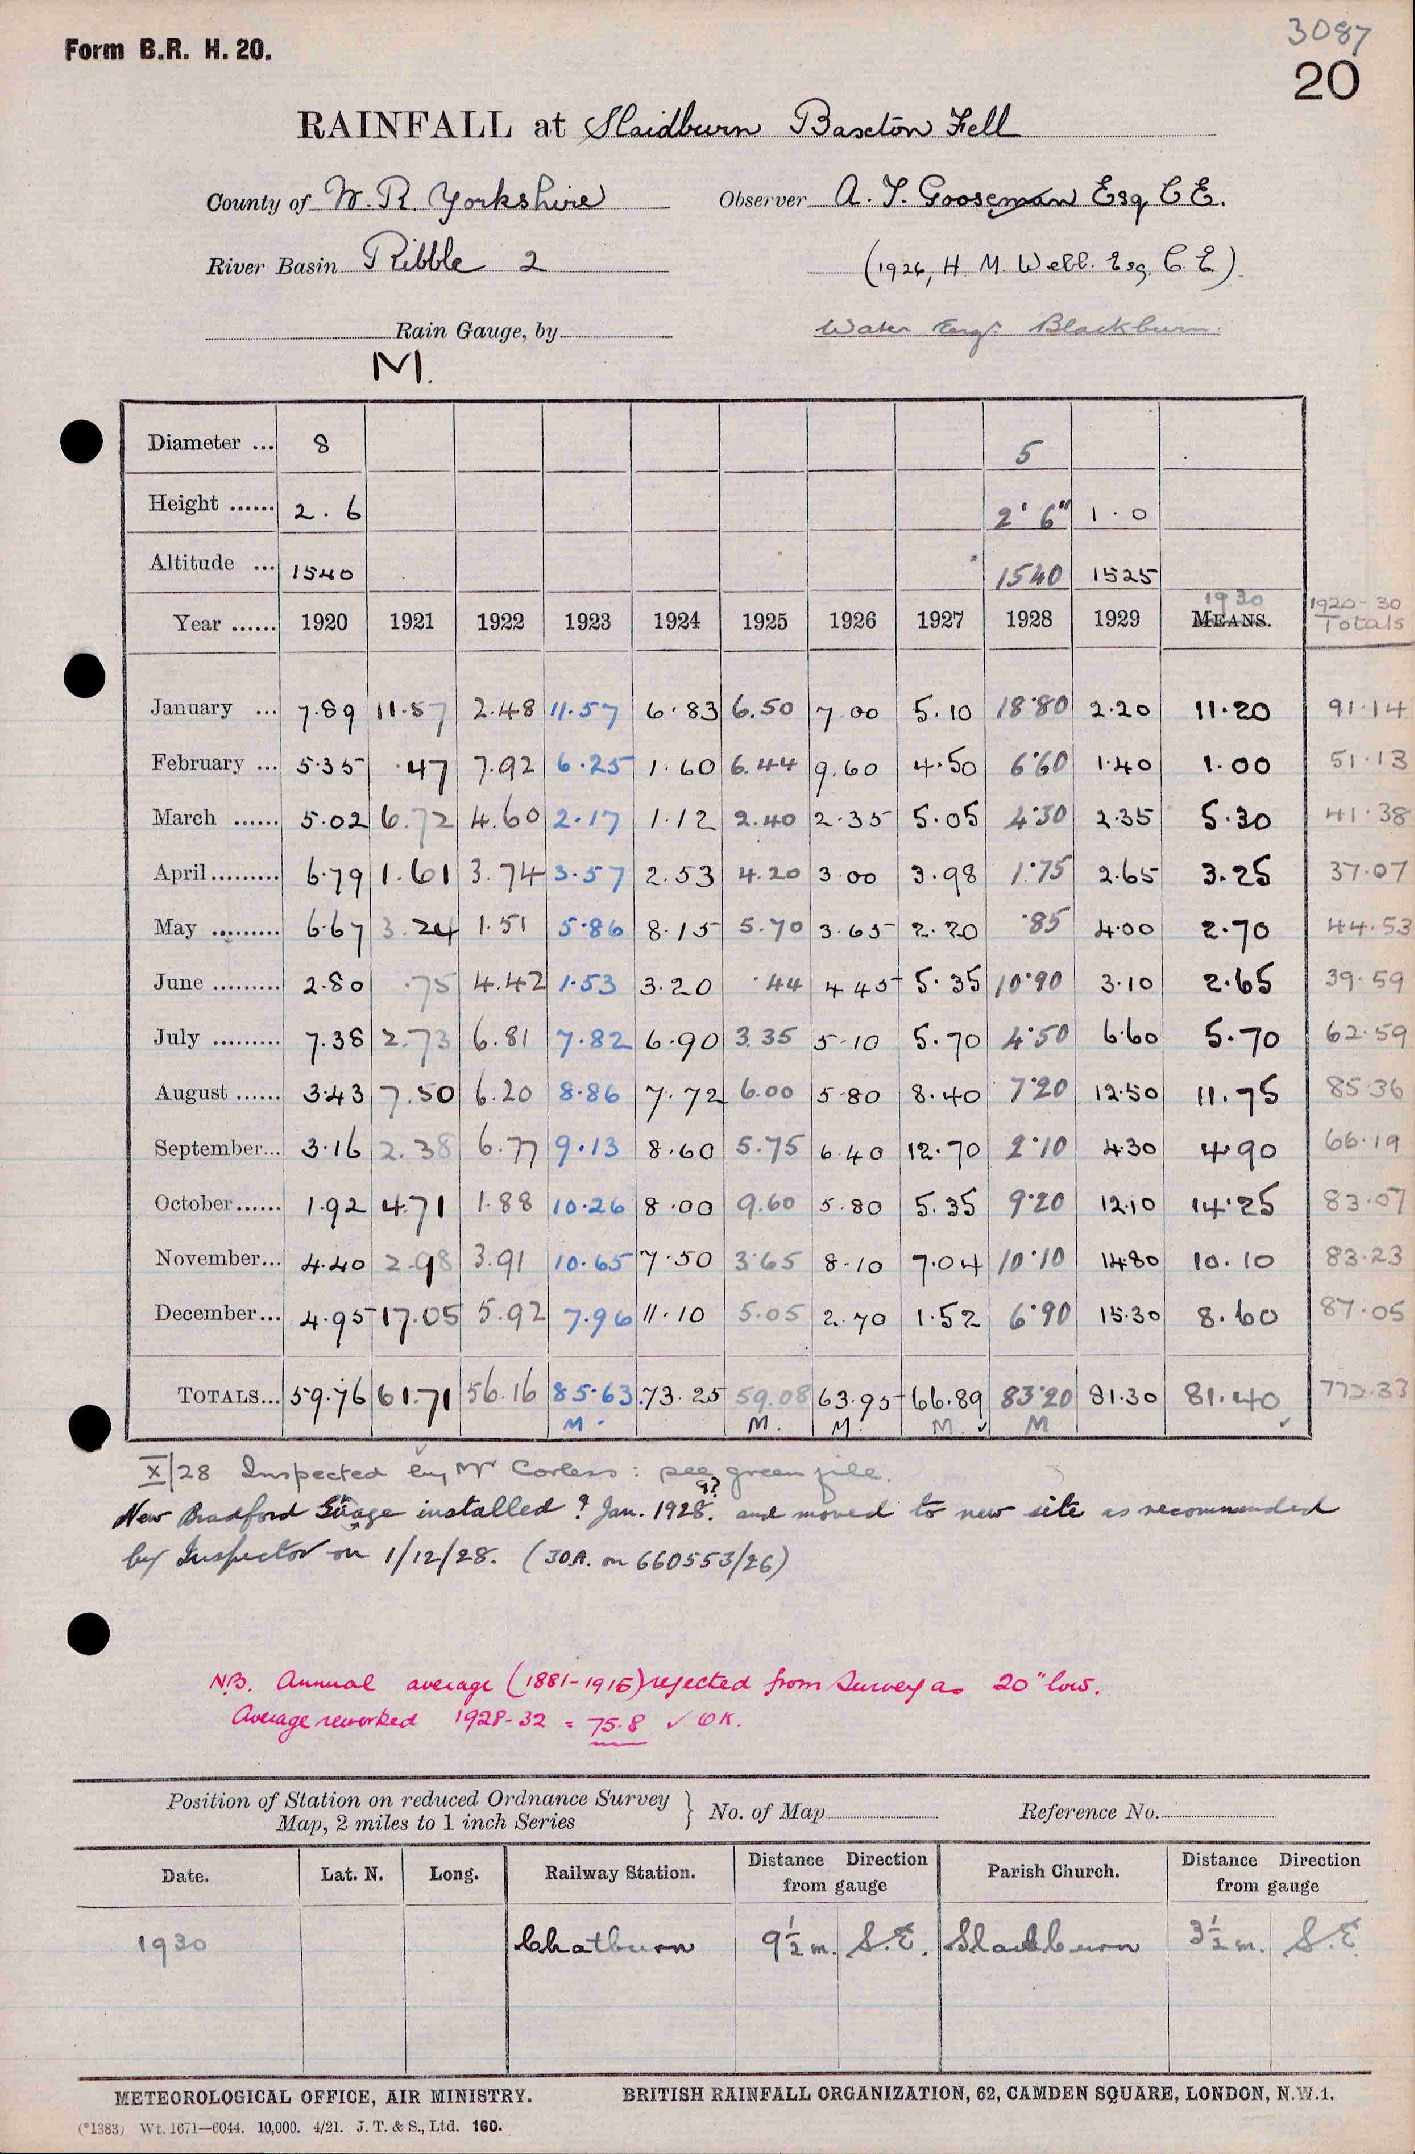 3087
Form B.R. H. 20.
20
RAINFALL at Slaidburn Baxton Fell
County of W. R. Yorkshire Observer A. T. Gooseman Esq C E.
River Basin Ribble 2 (1926, H. M. Webb. Esq. C. E)
Rain Gauge, by Water Engr. Blackburn.
M.
Diameter ... 8 5
Height ...... 2 . 6 2' 6" 1 . 0
Altitude ... 1540 1540 1525
Year ...... 1920 1921 1922 1923 1924 1925 1926 1927 1928 1929 1930 MEANS. 1920-30 Totals
January ... 7.89 11.57 2.48 11.57 6.83 6.50 7.00 5.10 18.80 2.20 11.20 91.14
February ... 5.35 .47 7.92 6.25 1.60 6.44 9.60 4.50 6.60 1.40 1.00 51.13
March ...... 5.02 6.72 4.60 2.17 1.12 2.40 2.35 5.05 4.30 2.35 5.30 41.38
April ......... 6.79 1.61 3.74 3.57 2.53 4.20 3.00 3.98 1.75 2.65 3.25 37.07
May ......... 6.67 3.24 1.51 5.86 8.15 5.70 3.65 2.20 .85 4.00 2.70 44.53
June ......... 2.80 .75 4.42 1.53 3.20 .44 4.45 5.35 10.90 3.10 2.65 39.59
July ......... 7.38 2.73 6.81 7.82 6.90 3.35 5.10 5.70 4.50 6.60 5.70 62.59
August ...... 3.43 7.50 6.20 8.86 7.72 6.00 5.80 8.40 7.20 12.50 11.75 85.36
September... 3.16 2.38 6.77 9.13 8.60 5.75 6.40 12.70 2.10 4.30 4.90 66.19
October ...... 1.92 4.71 1.88 10.26 8.00 9.60 5.80 5.35 9.20 12.10 14.25 83.07
November... 4.40 2.98 3.91 10.65 7.50 3.65 8.10 7.04 10.10 14.80 10.10 83.23
December... 4.95 17.05 5.92 7.96 11.10 5.05 2.70 1.52 6.90 15.30 8.60 87.05
TOTALS... 59.76 61.71 56.16 85.63 73.25 59.08 63.95 66.89 83.20 81.30 81.40 772.33
M. M. M. M. ✓ M ✓
X/28 Inspected by Mr Corless : see green file.
New Bradford Guage installed ? Jan. 1928. 9? and moved to new site as recommended
by Inspector on 1/12/28. (JOA. on 660553/26)
N.B. Annual average (1881-1915) rejected from Survey as 20" low.
Average reworked 1928-32 = 75.8 ✓ OK.
Position of Station on reduced Ordnance Survey
Map, 2 miles to 1 inch Series } No. of Map Reference No.
Date. Lat. N. Long. Railway Station. Distance Direction from gauge Parish Church. Distance Direction from gauge
1930 Chatburn 9½ m. S.E. Slaidburn 3½ m. S.E.
METEOROLOGICAL OFFICE, AIR MINISTRY. BRITISH RAINFALL ORGANIZATION, 62, CAMDEN SQUARE, LONDON, N.W.1.
(*1383) Wt. 1671—6044. 10,000. 4/21. J. T. & S., Ltd. 160.